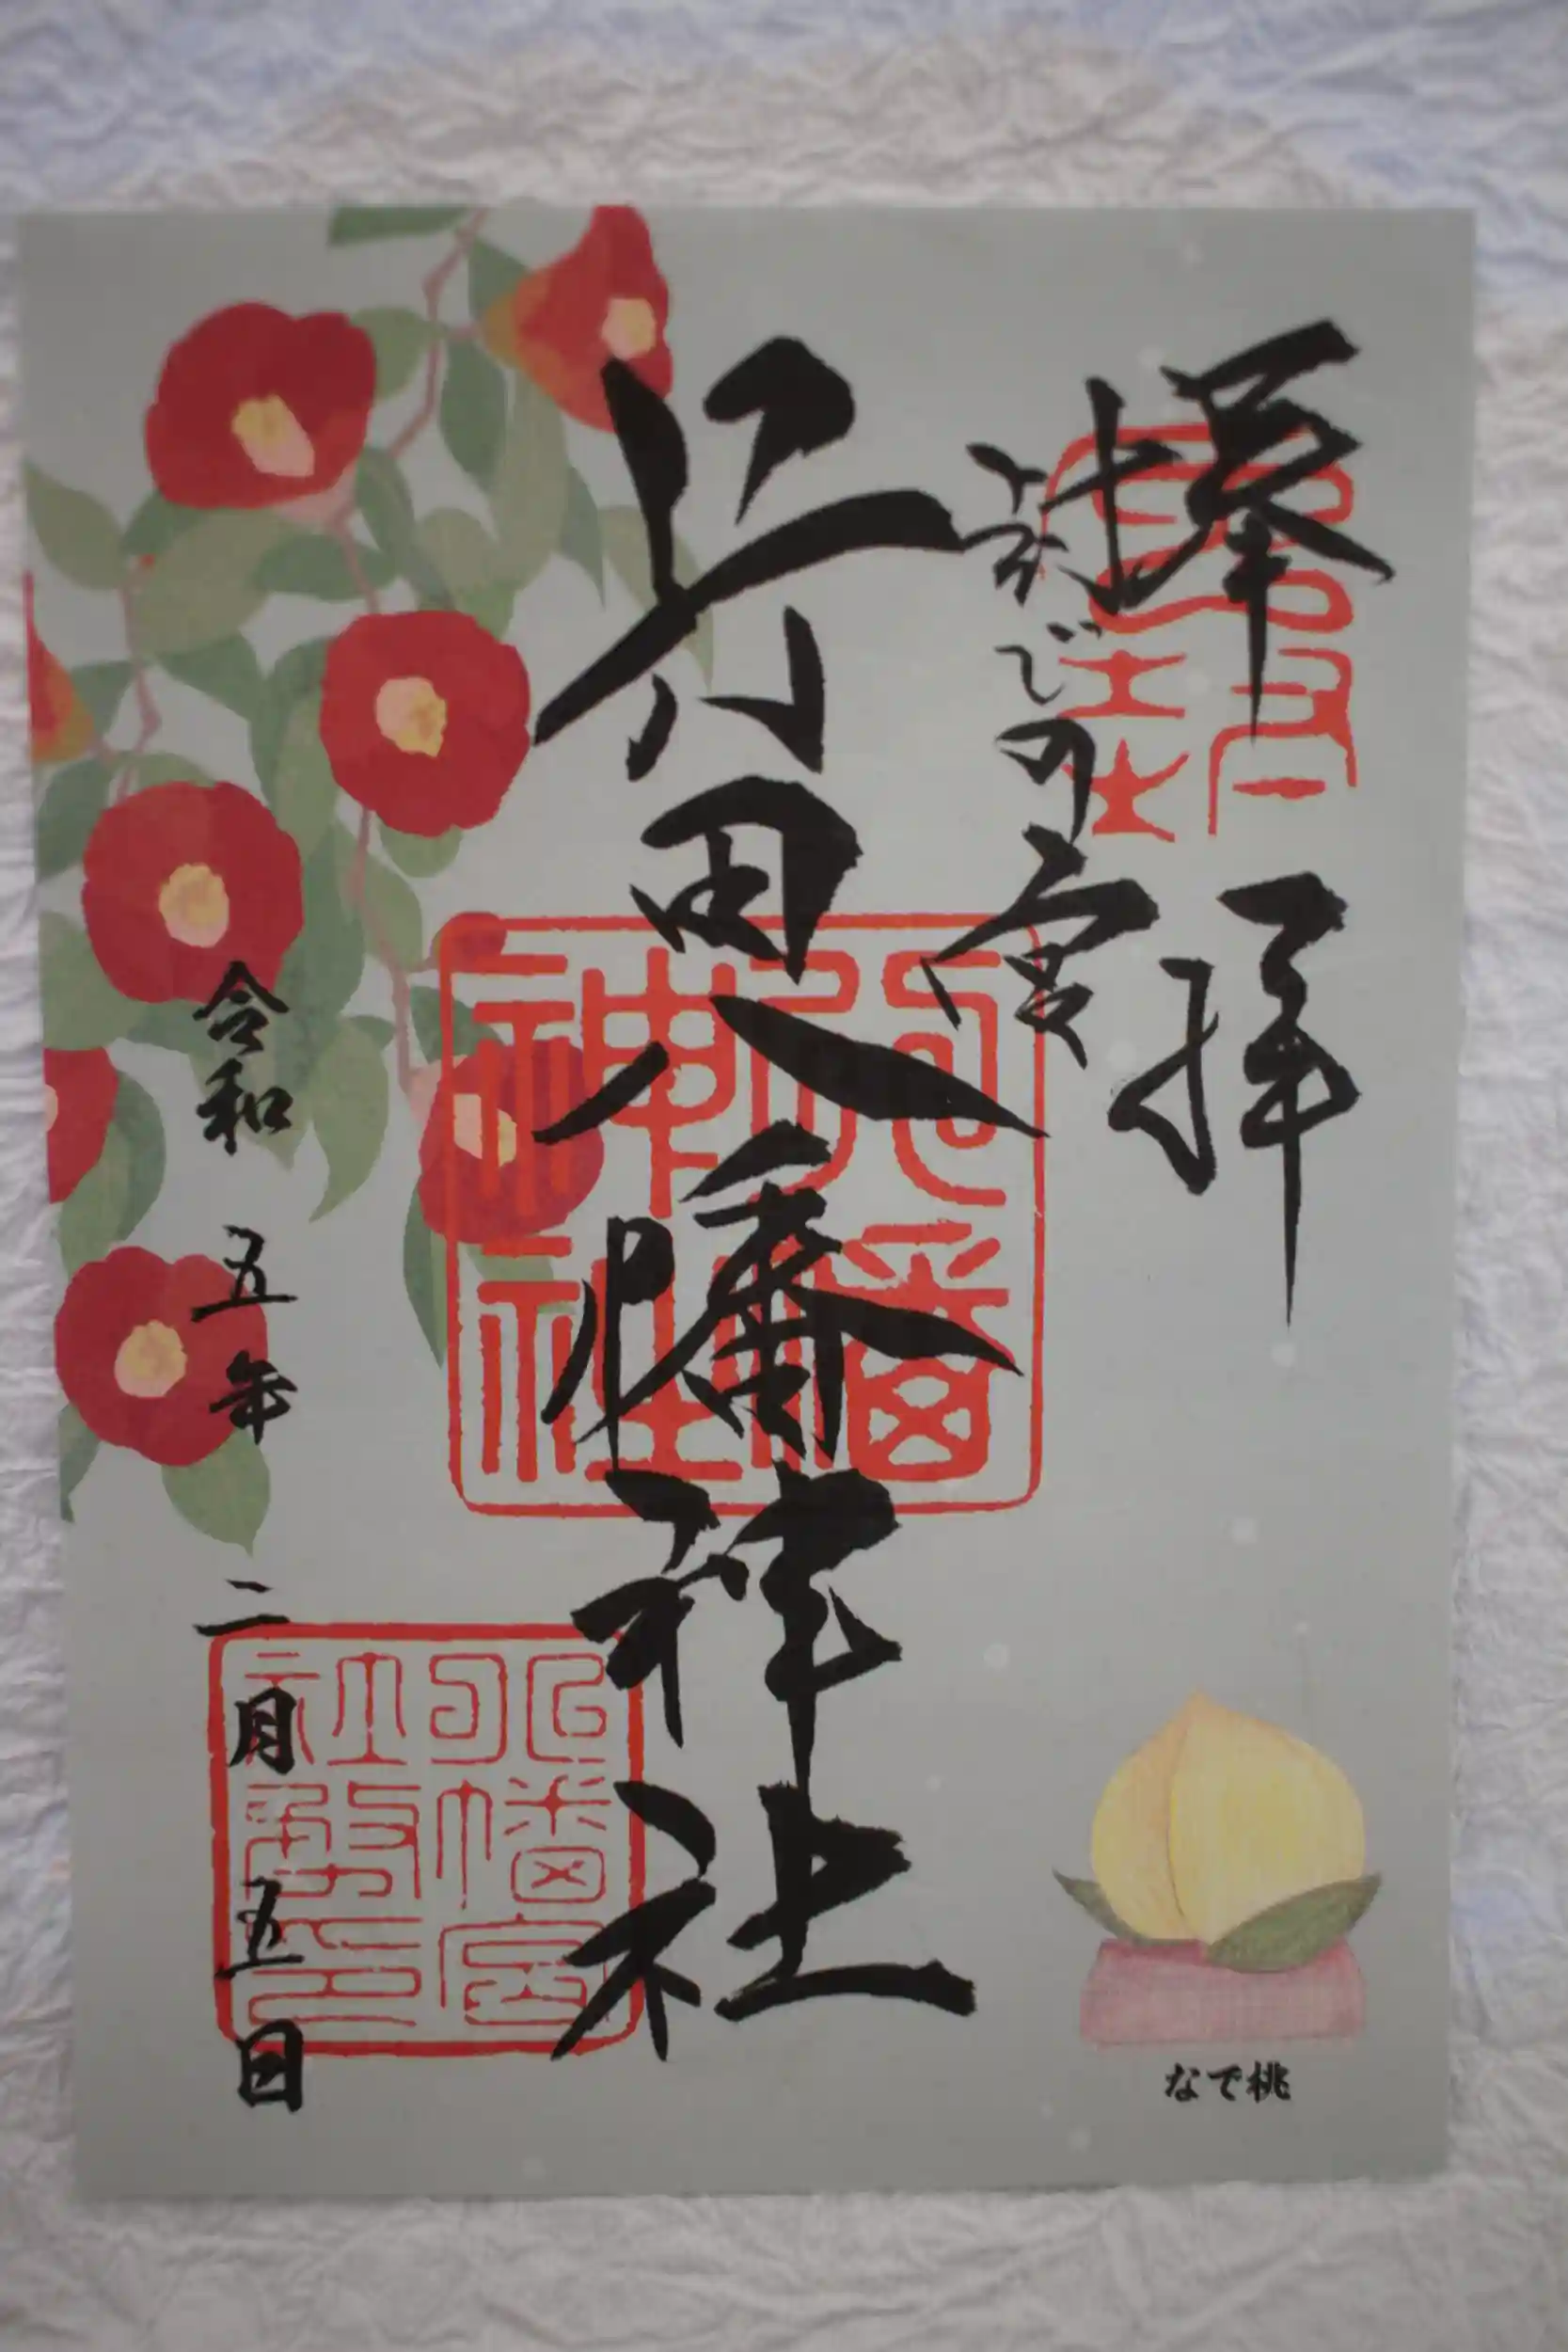 奉拝
封じの宮
行田八幡神社
八幡神社
令和五年二月五日
八幡宮社務印
なで桃